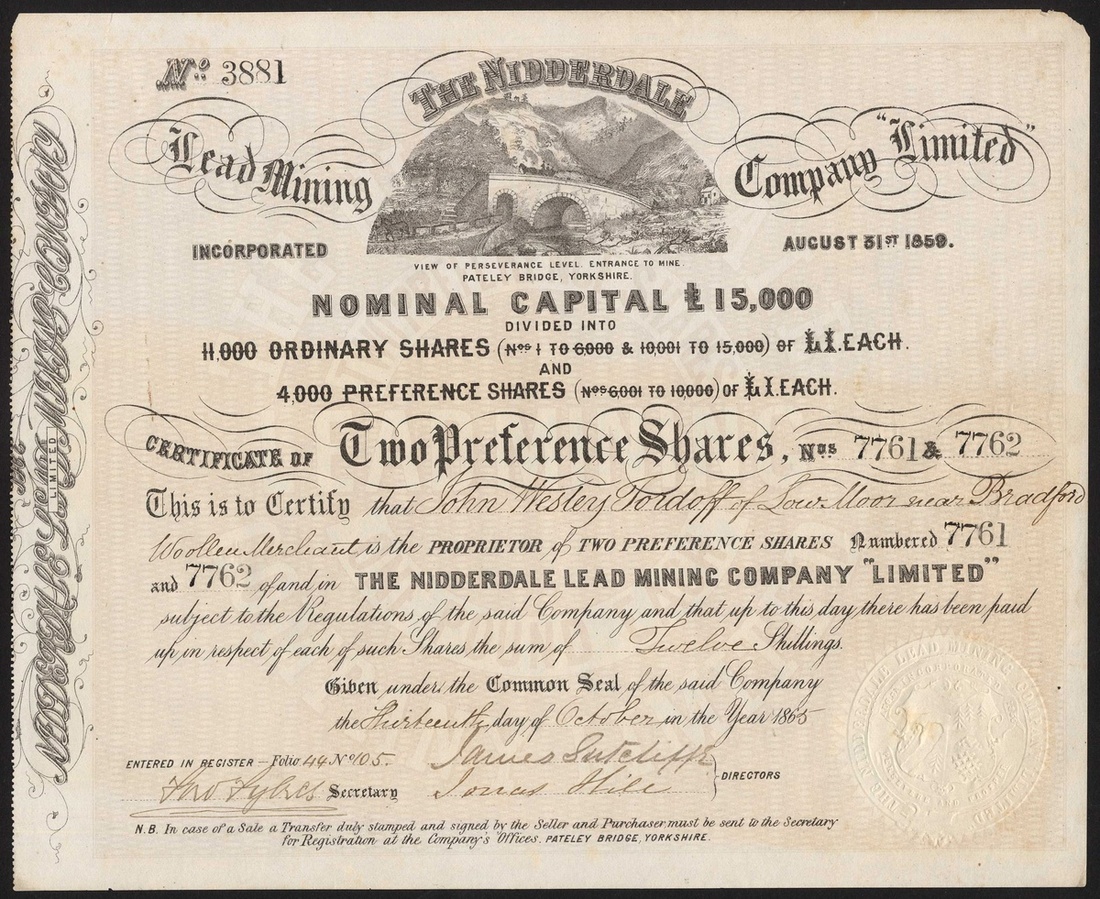 No. 3881
THE NIDDERDALE
Lead Mining Company "Limited"
INCORPORATED AUGUST 31ST 1859.
VIEW OF PERSEVERANCE LEVEL. ENTRANCE TO MINE.
PATELEY BRIDGE, YORKSHIRE.
NOMINAL CAPITAL £15,000
DIVIDED INTO
11,000 ORDINARY SHARES (Nos 1 TO 6,000 & 10,001 TO 15,000) OF £1. EACH.
AND
4,000 PREFERENCE SHARES (Nos 6,001 TO 10,000) OF £1. EACH.
CERTIFICATE OF Two Preference Shares, Nos 7761 & 7762
This is to Certify that John Wesley Tordoff of Low Moor near Bradford
Woollen Merchant is the PROPRIETOR of TWO PREFERENCE SHARES Numbered 7761
and 7762 of and in THE NIDDERDALE LEAD MINING COMPANY "LIMITED"
subject to the Regulations of the said Company and that up to this day there has been paid
up in respect of each of such Shares the sum of Twelve Shillings.
Given under the Common Seal of the said Company
the Thirteenth day of October in the Year 1865
ENTERED IN REGISTER – Folio 44 No 105. James Sutcliffe
Thos Sykes Secretary Jonas Hill DIRECTORS
N.B. In case of a Sale a Transfer duly stamped and signed by the Seller and Purchaser must be sent to the Secretary
for Registration at the Company's Offices, PATELEY BRIDGE, YORKSHIRE.
THE NIDDERDALE LEAD MINING COMPANY
LIMITED